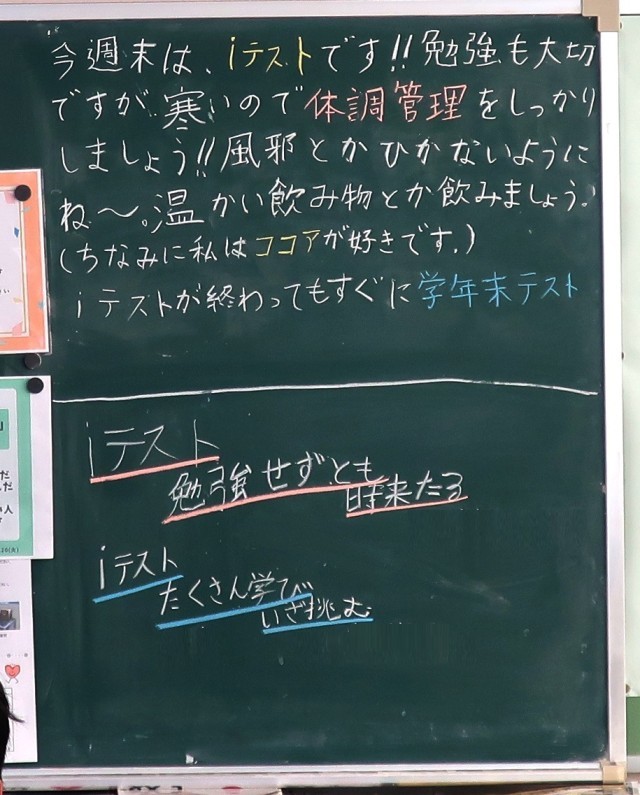 今週末は、iテストです!!勉強も大切
ですが、寒いので体調管理をしっかり
しましょう!!風邪とかひかないように
ね〜。温かい飲み物とか飲みましょう。
(ちなみに私はココアが好きです。)
iテストが終わってもすぐに学年末テスト
iテスト
勉強せずとも
時来たる
iテスト
たくさん学び
いざ挑む